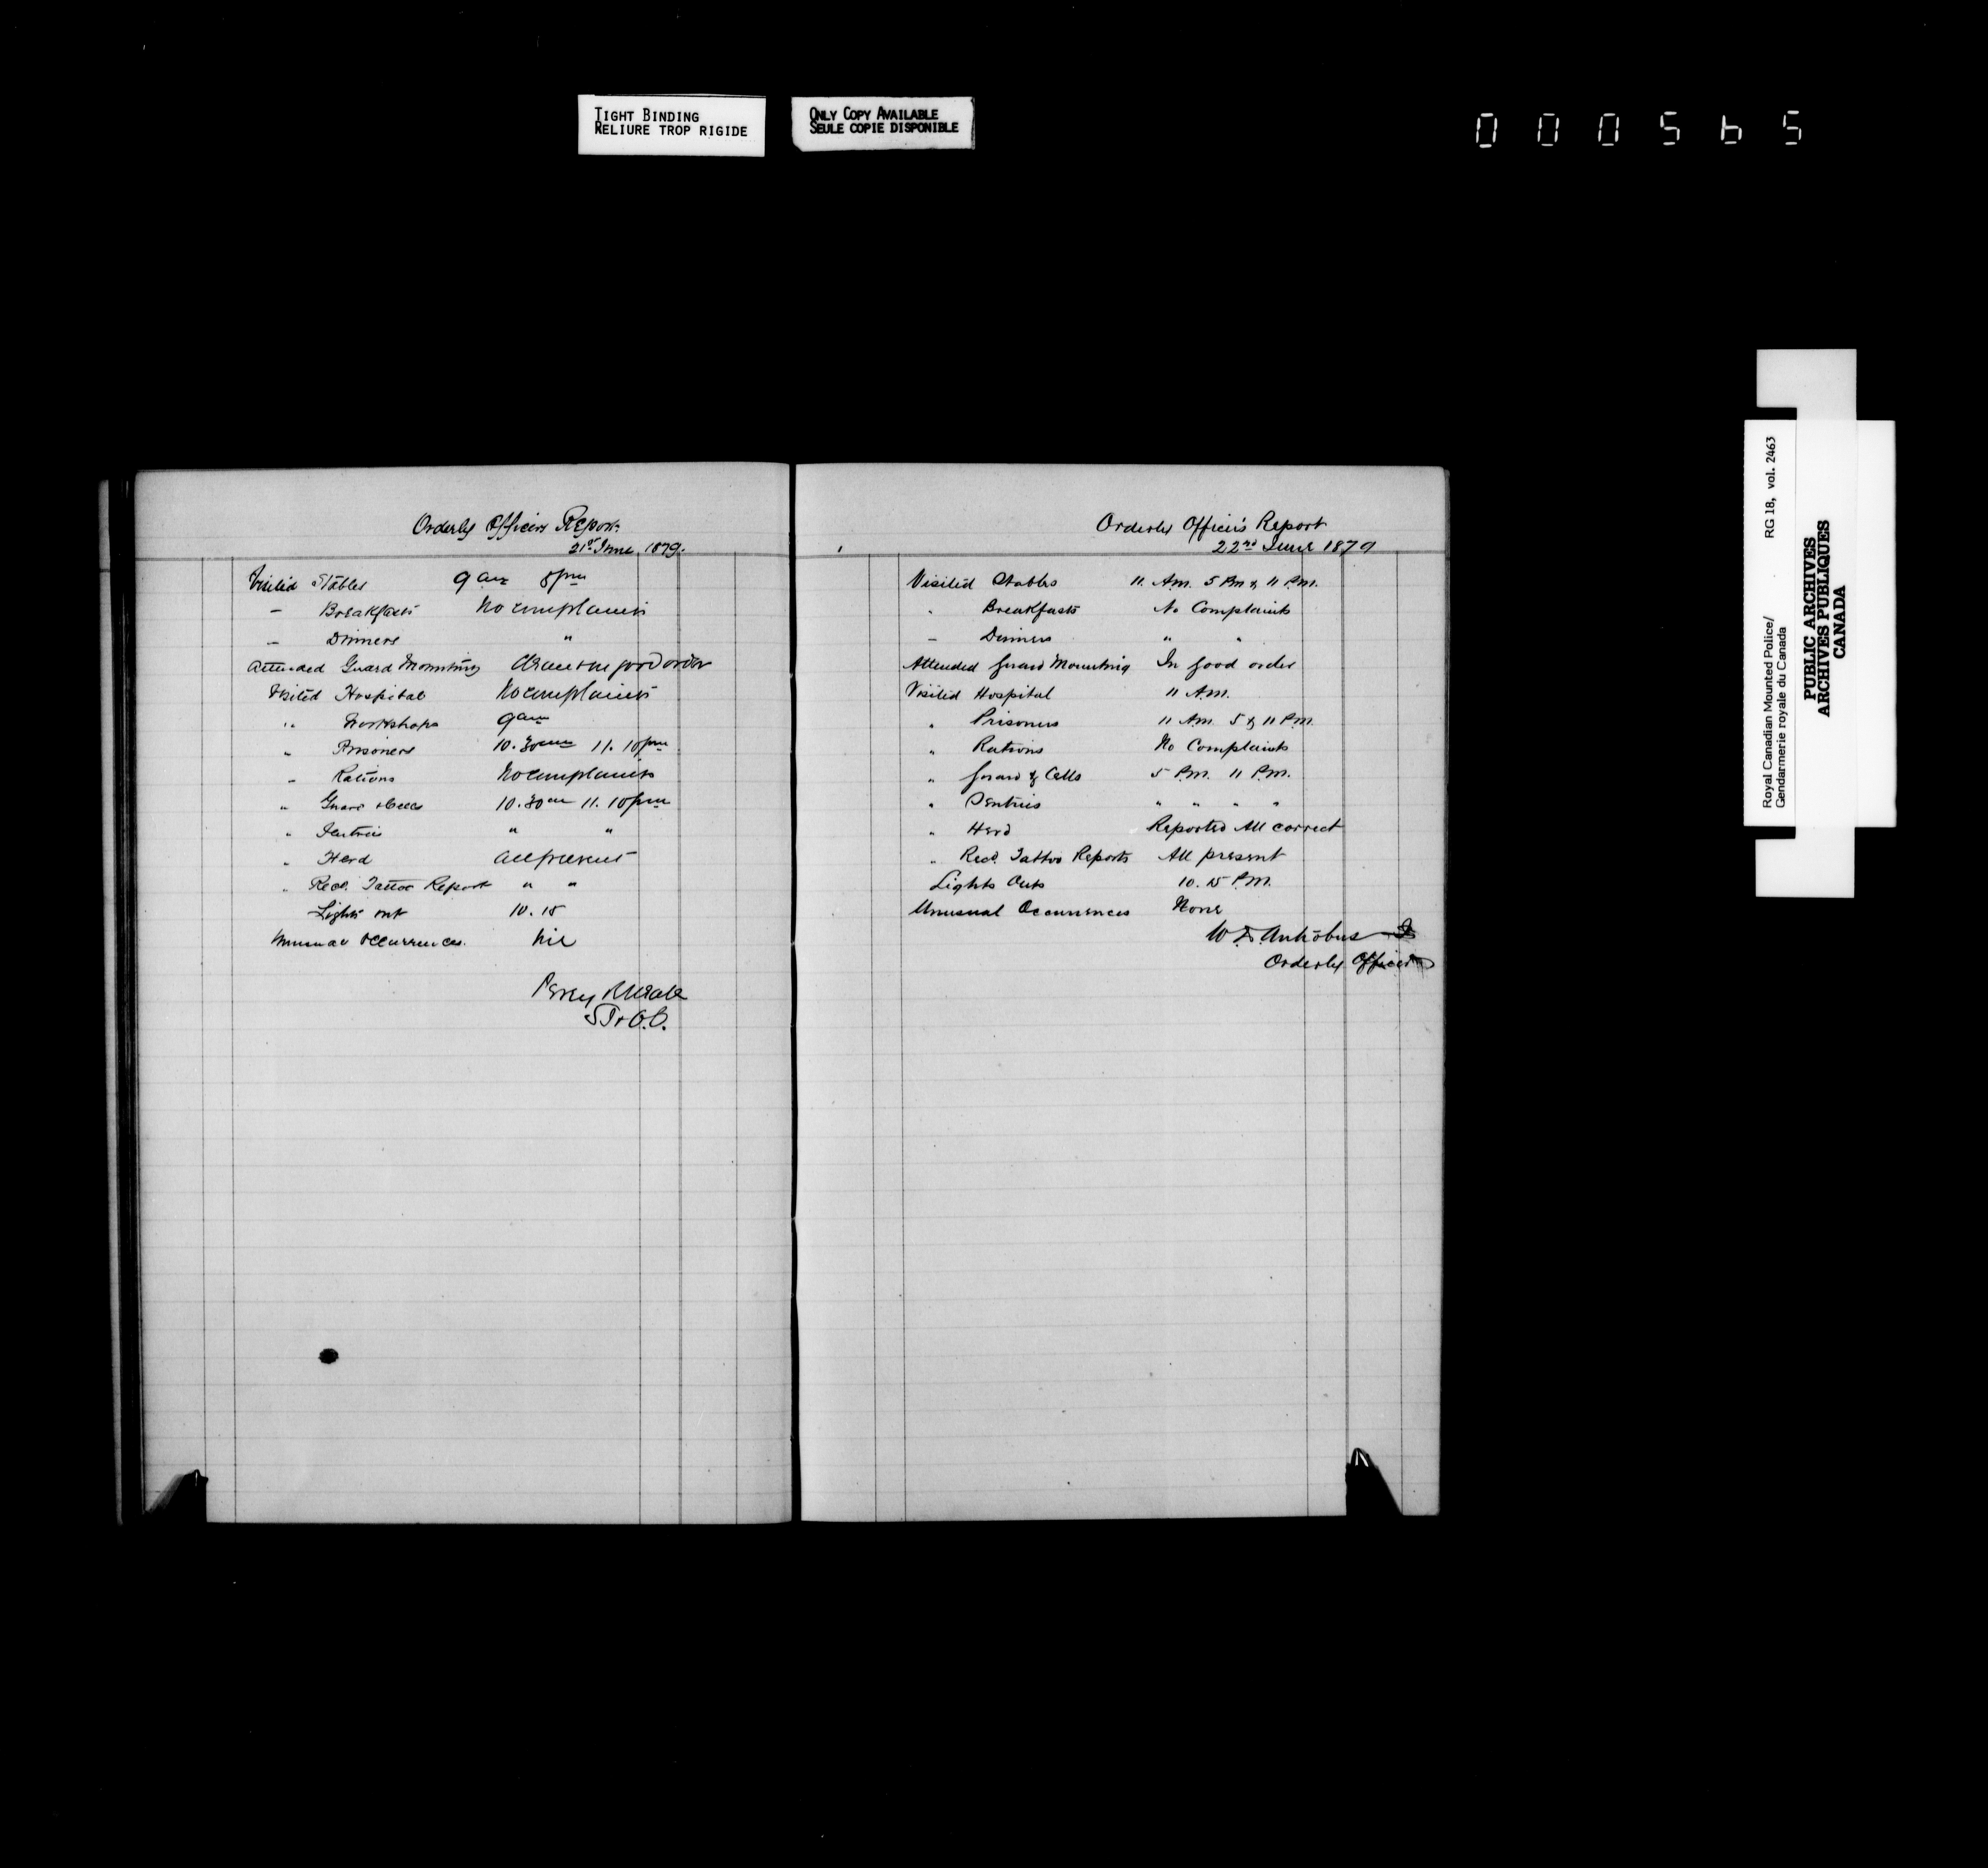 TIGHT BINDING
RELIURE TROP RIGIDE
ONLY COPY AVAILABLE
SEULE COPIE DISPONIBLE
000565
Orderly Officers Report
21st June 1879.
Visited Stables 9 am 8 pm
— Breakfasts No complaints
— Dinners "
Attended Guard Mounting Clean & in good order
Visited Hospital No complaints
" Workshops 9 am
" Prisoners 10.30 am 11.10 pm
" Rations No complaints
" Guard & Cells 10.30 am 11.10 pm
" Sentries " "
" Herd All present
" Recd. Tattoo Report " "
Lights out 10.15
Unusual Occurrences. Nil
Percy R Neale
Orderly Officer's Report
22nd June 1879
Visited Stables 11. A.m. 5 Pm & 11 P.m.
" Breakfasts No Complaints
— Dinners " "
Attended Guard Mounting In good order
Visited Hospital 11 A.m.
" Prisoners 11 Am. 5 & 11 P.m.
" Rations No Complaints
" Guard & Cells 5 P.m. 11 P.m.
" Sentries " " " "
" Herd Reported All correct
" Recd. Tattoo Reports All present
Lights Outs 10.15 P.m.
Unusual Occurrences None
W. D. Antrobus
Orderly Officer
Royal Canadian Mounted Police/ RG 18, vol. 2463
Gendarmerie royale du Canada
PUBLIC ARCHIVES
ARCHIVES PUBLIQUES
CANADA